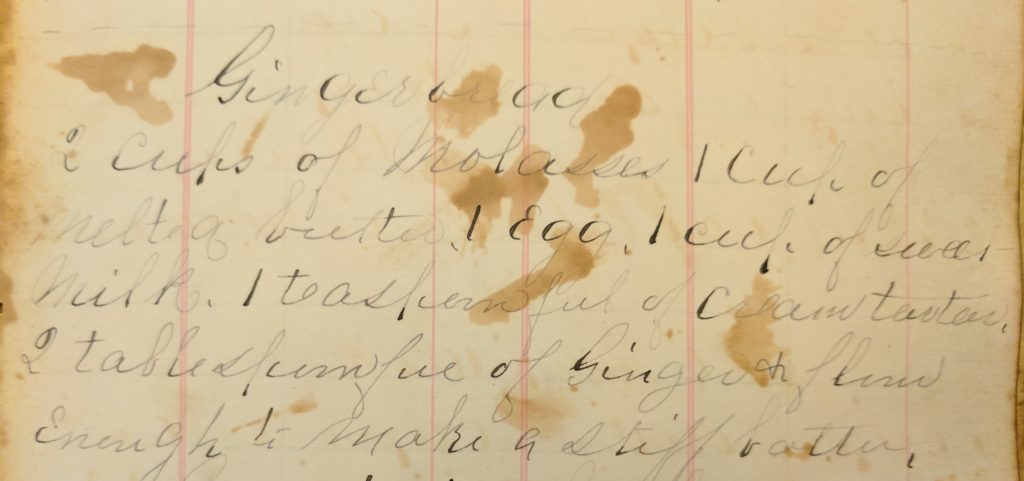 Gingerbread
2 cups of Molasses 1 Cup of
melted butter. 1 Egg. 1 cup of sweet
Milk. 1 teaspoonful of Cream tartar.
2 tablespoonful of Ginger & flour
Enough to make a stiff batter.